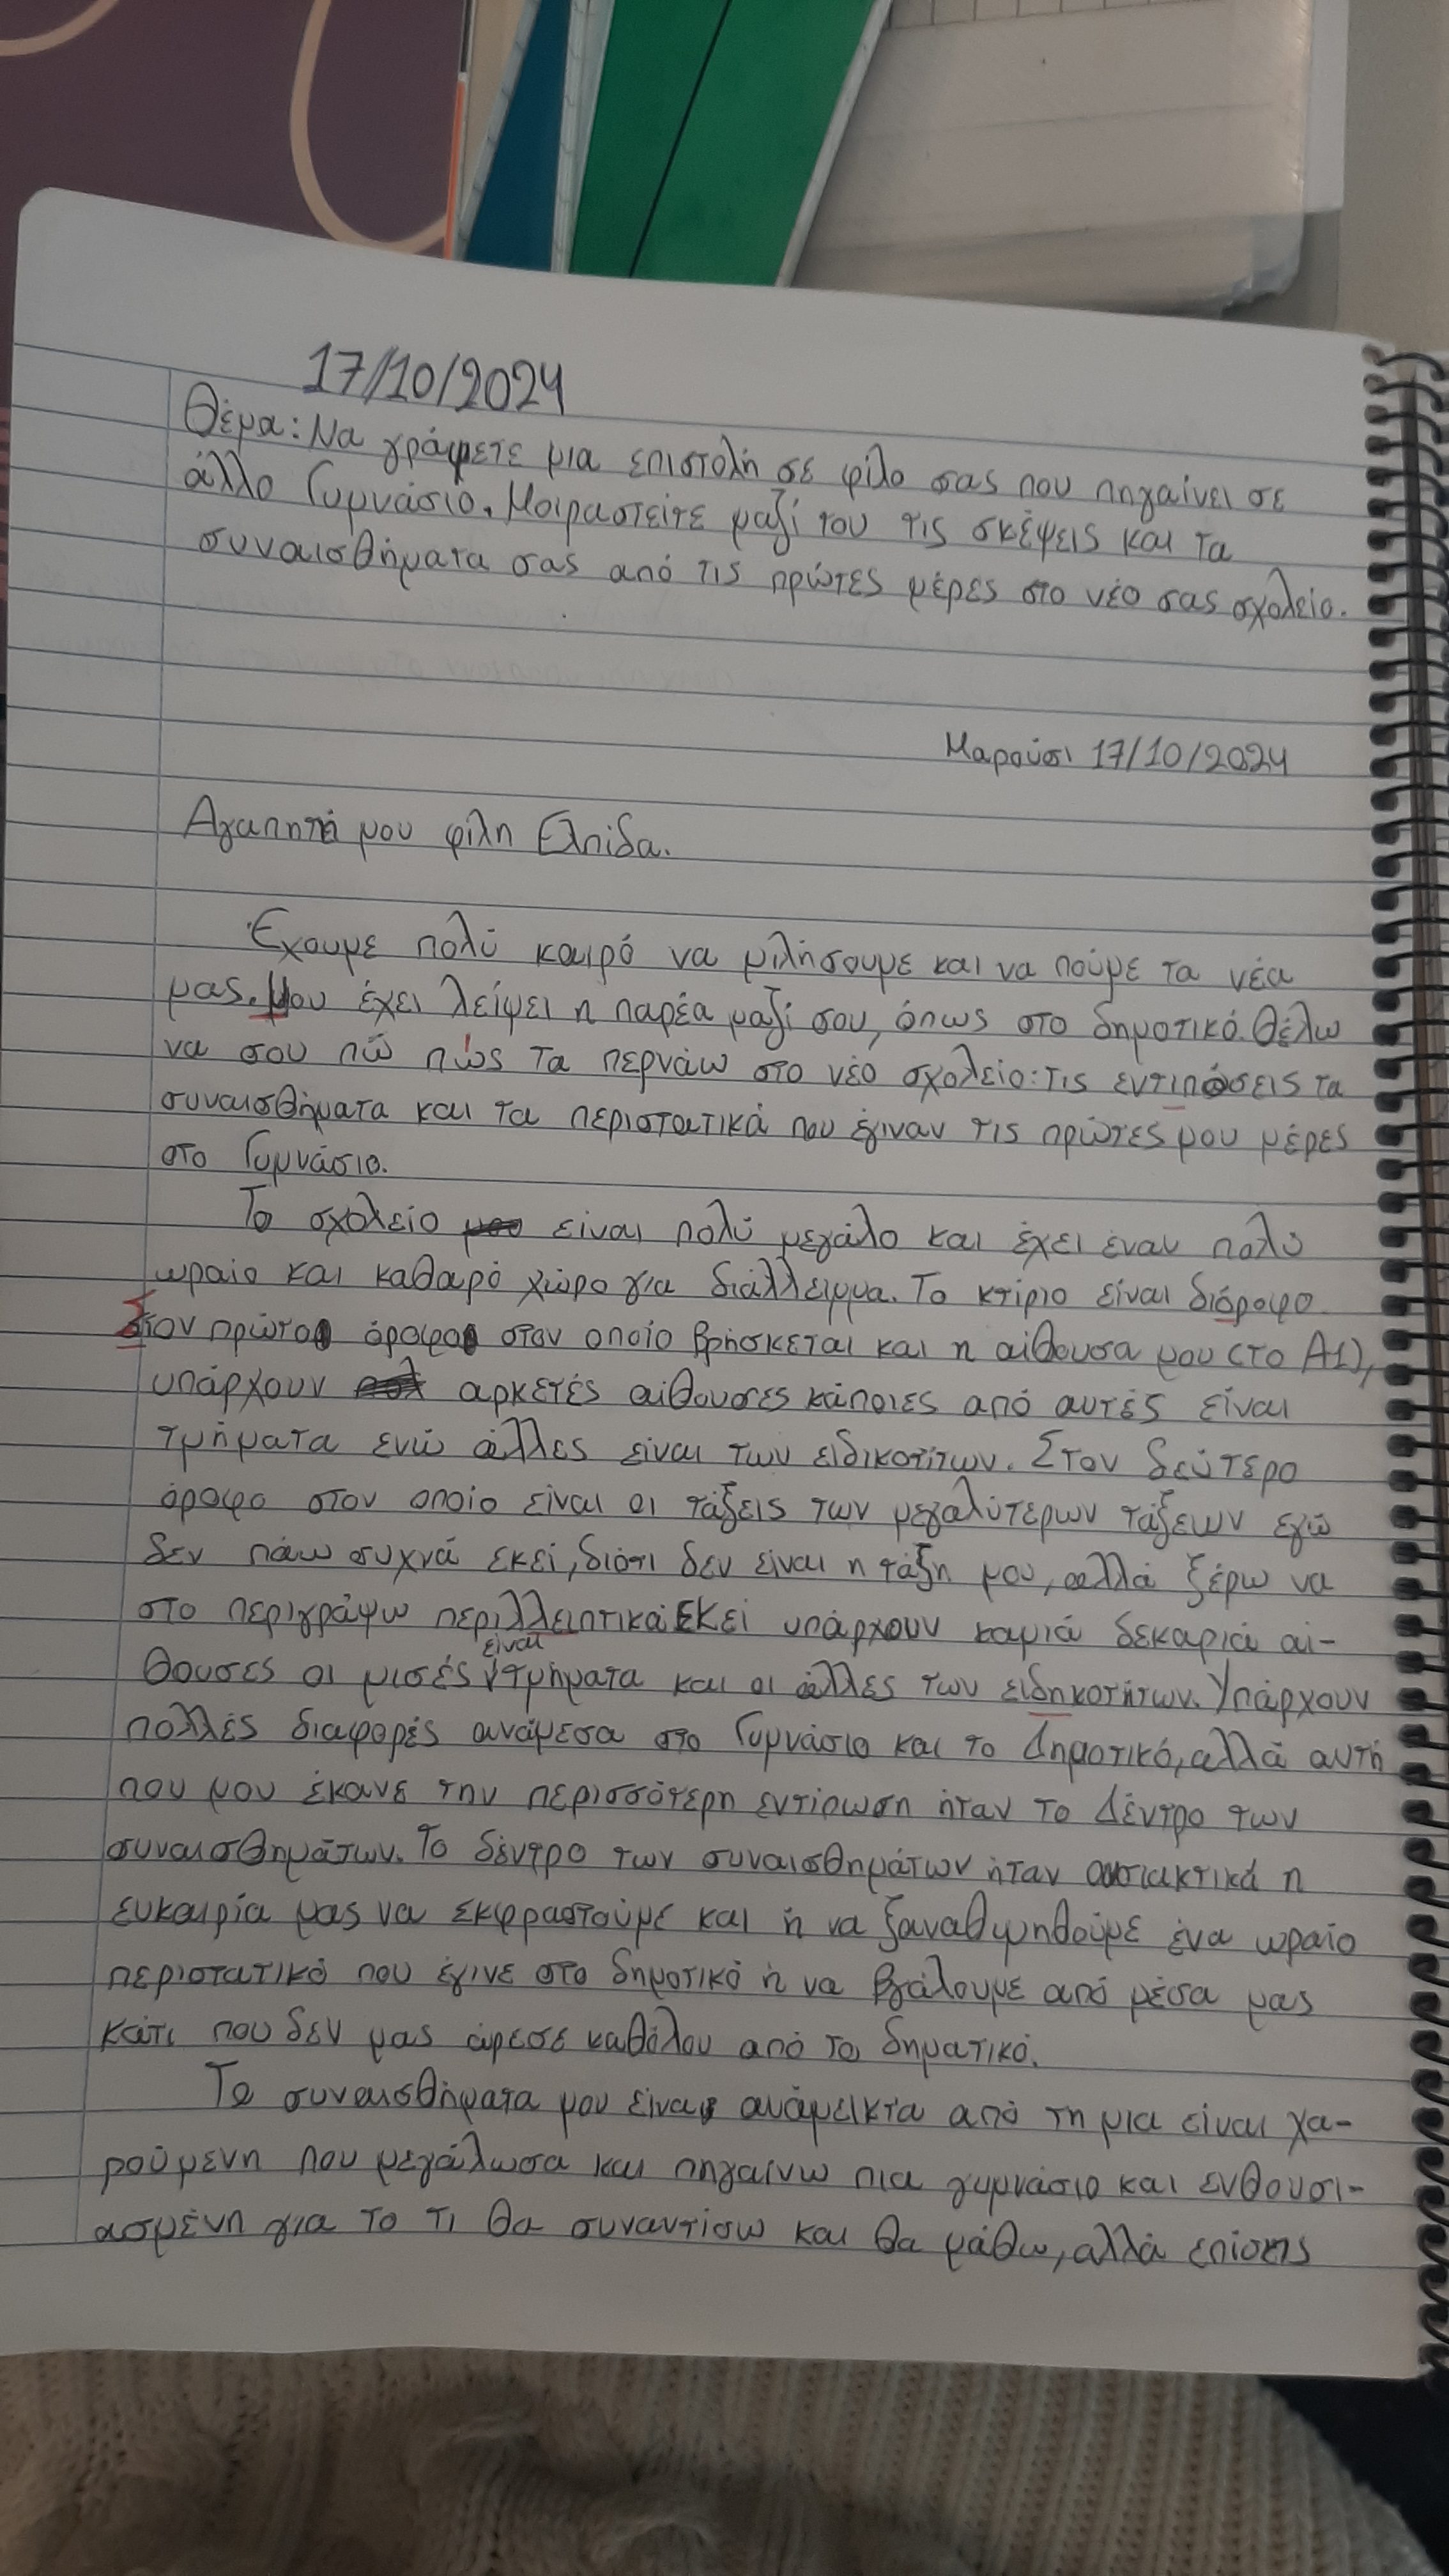 17/10/2024
Θέμα: Να γράψετε μια επιστολή σε φίλο σας που πηγαίνει σε
άλλο Γυμνάσιο. Μοιραστείτε μαζί του τις σκέψεις και τα
συναισθήματα σας από τις πρώτες μέρες στο νέο σας σχολείο.
Μαρούσι 17/10/2024
Αγαπητή μου φίλη Ελπίδα.
Έχουμε πολύ καιρό να μιλήσουμε και να πούμε τα νέα
μας. Μου έχει λείψει η παρέα μαζί σου, όπως στο δημοτικό. Θέλω
να σου πώ πώς τα περνάω στο νέο σχολείο: τις εντιπόσεις τα
συναισθήματα και τα περιστατικά που έγιναν τις πρώτες μου μέρες
στο Γυμνάσιο.
Το σχολείο είναι πολύ μεγάλο και έχει έναν πολύ
ωραίο και καθαρό χώρο για διάλλειμμα. Το κτίριο είναι διόροφο
Στον πρώτο όροφο στον οποίο βρήσκεται και η αίθουσα μου (το Α1),
υπάρχουν αρκετές αίθουσες κάποιες από αυτές είναι
τμήματα ενώ άλλες είναι των ειδικοτίτων. Στον δεύτερο
όροφο στον οποίο είναι οι τάξεις των μεγαλύτερων τάξεων εγώ
δεν πάω συχνά εκεί, διότι δεν είναι η τάξη μου, αλλά ξέρω να
στο περιγράψω περιλλειπτικά Εκεί υπάρχουν καμιά δεκαριά αί-
θουσες οι μισές είναι τμήματα και οι άλλες των ειδηκοτήτων. Υπάρχουν
πολλές διαφορές ανάμεσα στο Γυμνάσιο και το Δημοτικό, αλλά αυτή
που μου έκανε την περισσότερη εντίπωση ήταν το Δέντρο των
συναισθημάτων. Το δέντρο των συναισθημάτων ήταν ουσιακτικά η
ευκαιρία μας να εκφραστούμε και ή να ξαναθυμηθούμε ένα ωραίο
περιστατικό που έγινε στο δημοτικό ή να βγάλουμε από μέσα μας
κάτι που δεν μας άρεσε καθόλου από το δηματικό.
Το συναισθήματα μου είναι ανάμεικτα από τη μια είναι χα-
ρούμενη που μεγάλωσα και πηγαίνω πια γυμνάσιο και ενθουσι-
ασμένη για το τι θα συναντίσω και θα μάθω, αλλά επίσης